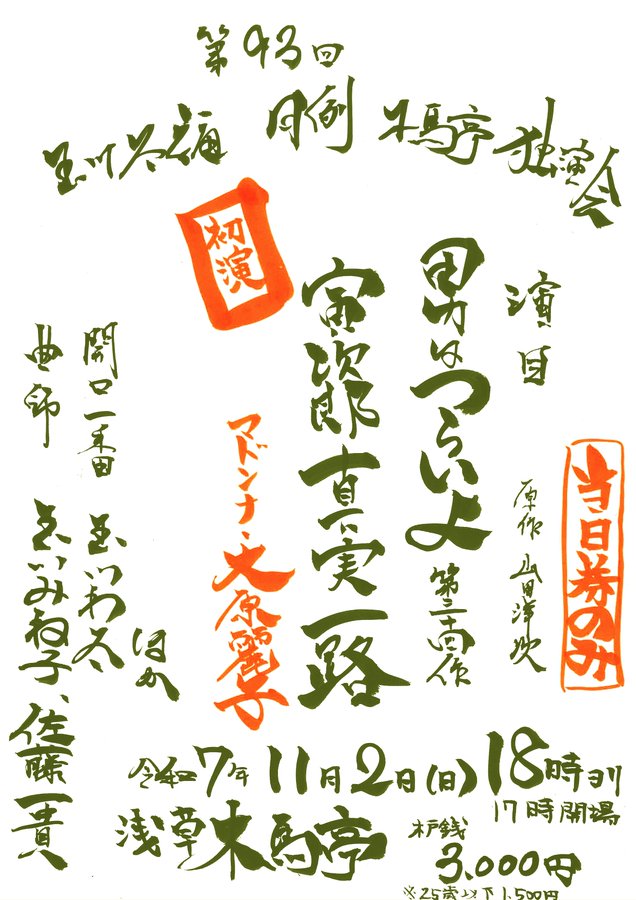 第93回
玉川太福 月例 木馬亭 独演会
当日券のみ
演目
原作 山田洋次
男はつらいよ 第三十四作
寅次郎真実一路
初演
マドンナ・大原麗子
開口一番 玉川わ太
ほか
曲師 玉川みね子、佐藤一貴
令和7年11月2日(日)18時ヨリ
17時開場
浅草木馬亭
木戸銭
3.000円
※25歳以下1,500円